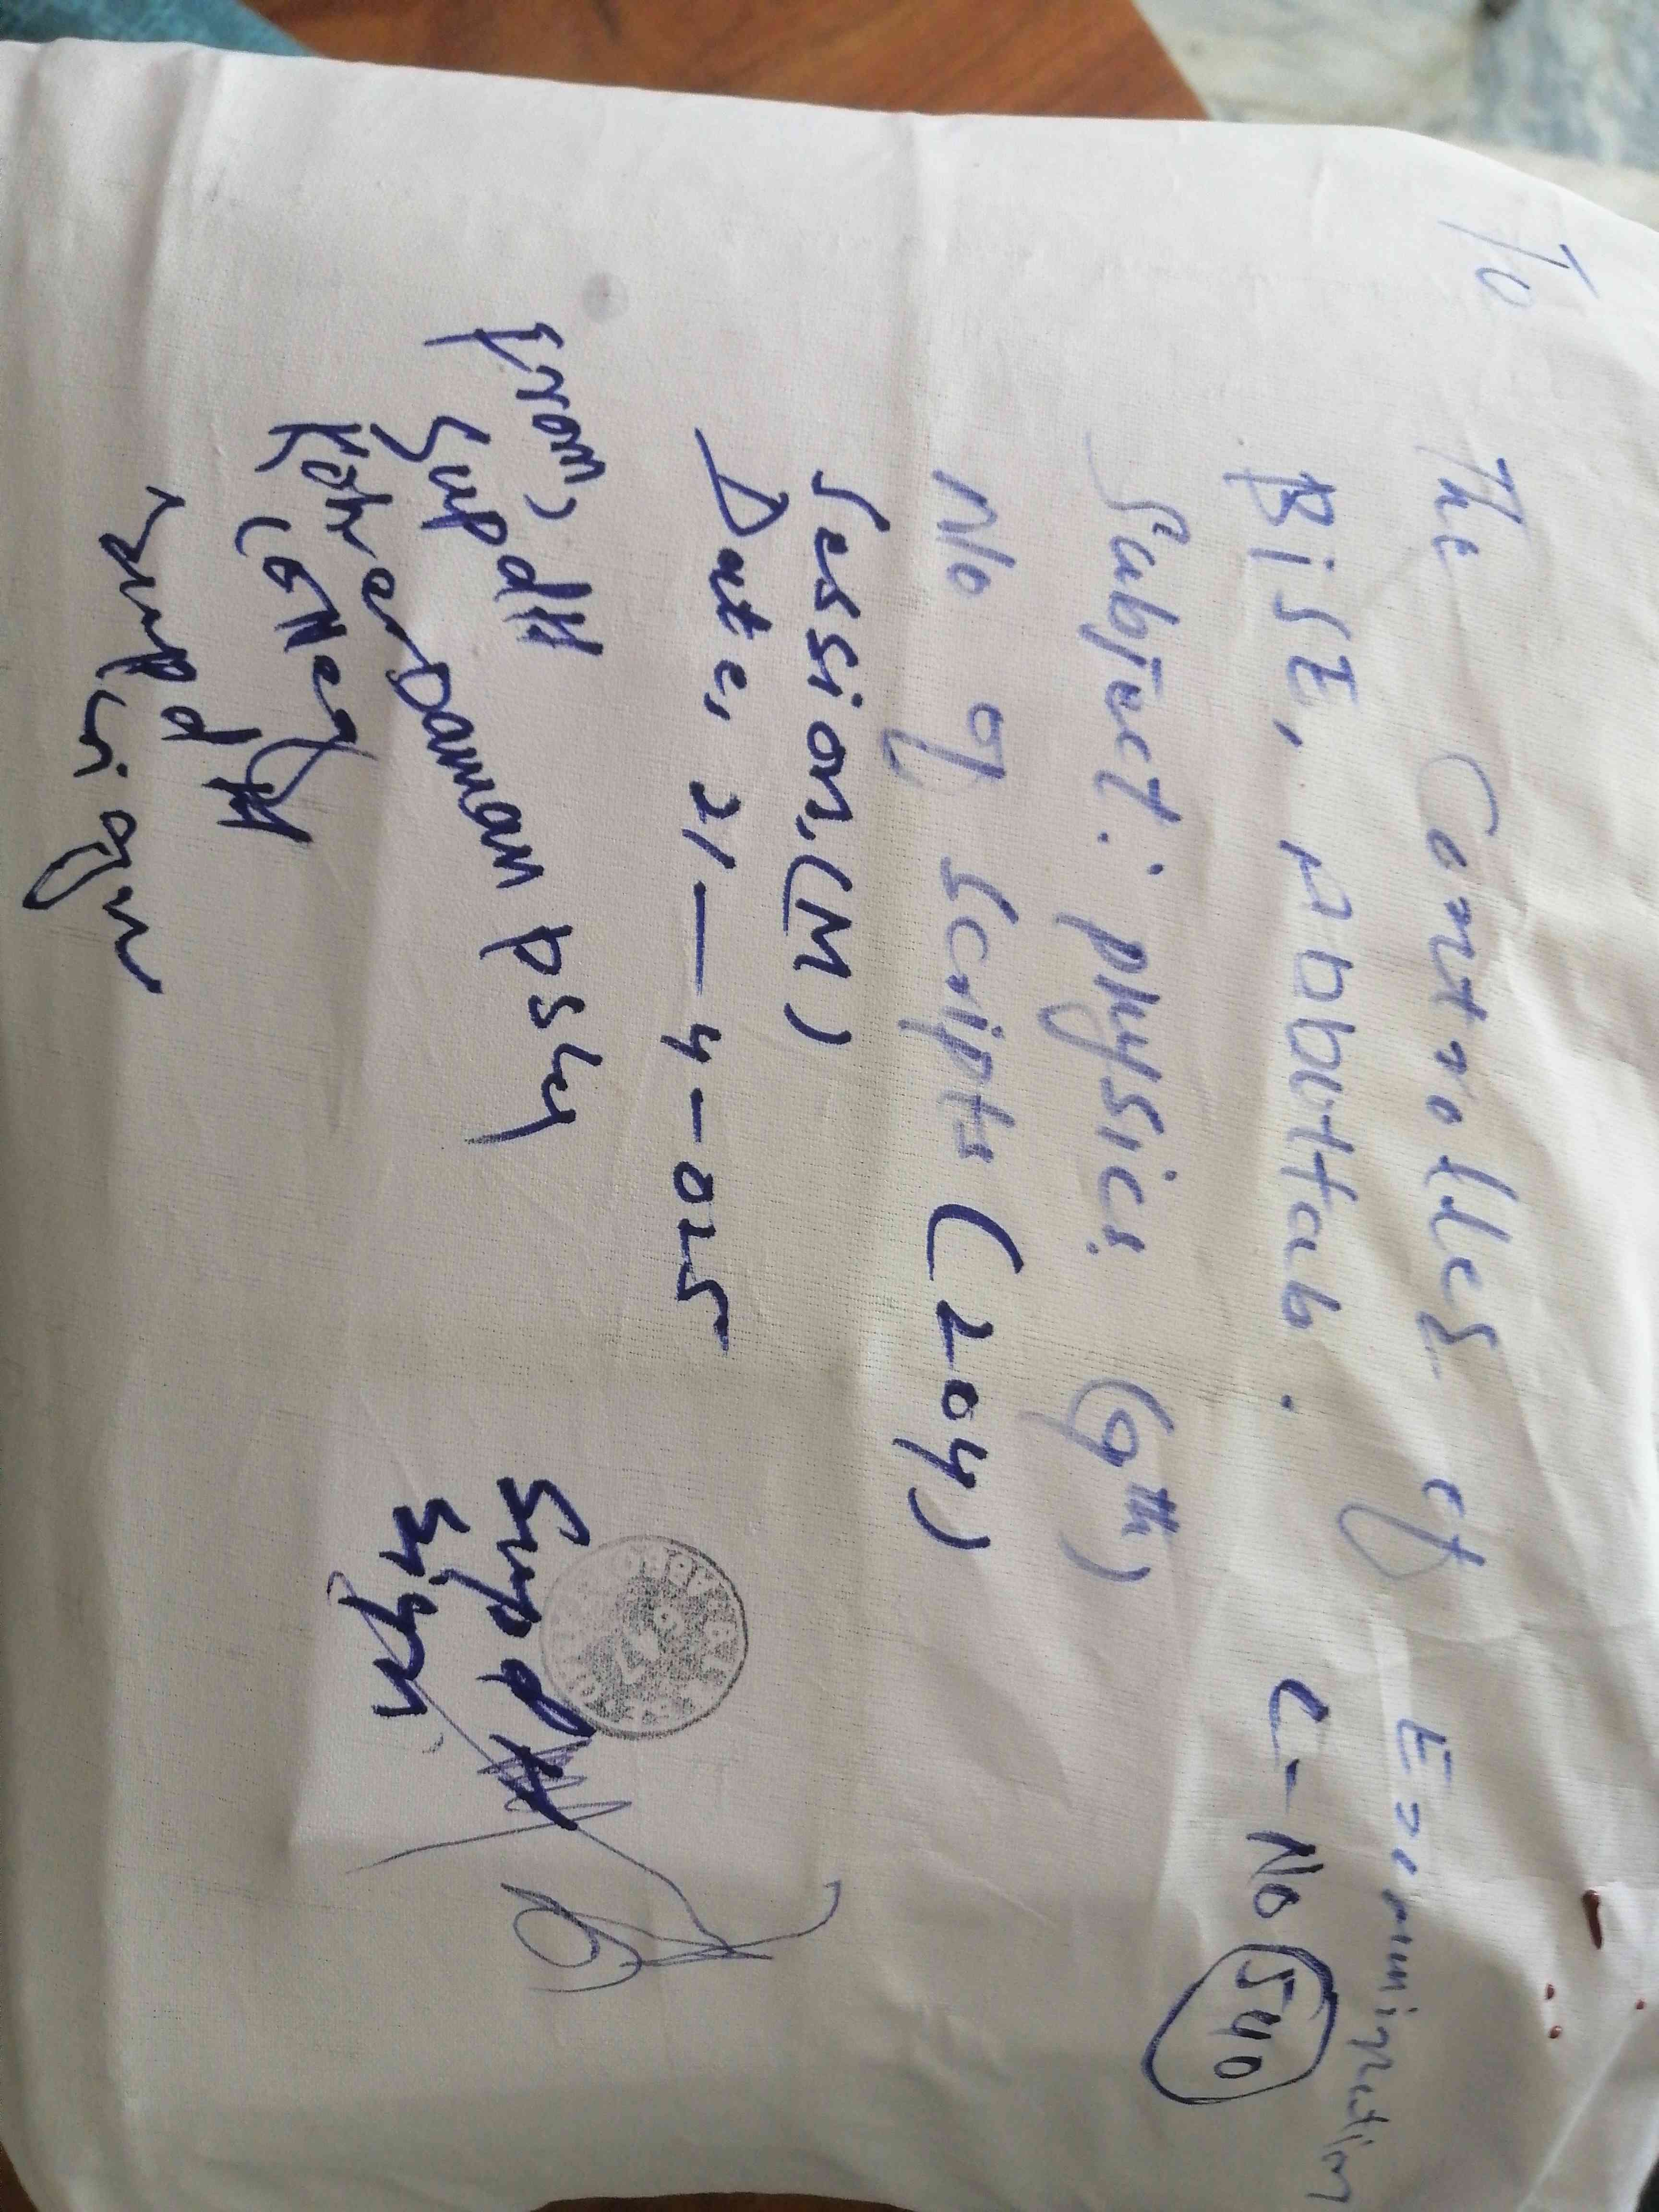 To
The Controller of Examination
BISE, Abbottab. C-No 540
Subject: physics (9th)
No of scripts (204)
Session, (M)
Date, 21-4-025
from, Supdtt
Supdtt
sign
College
Supdtt
sign